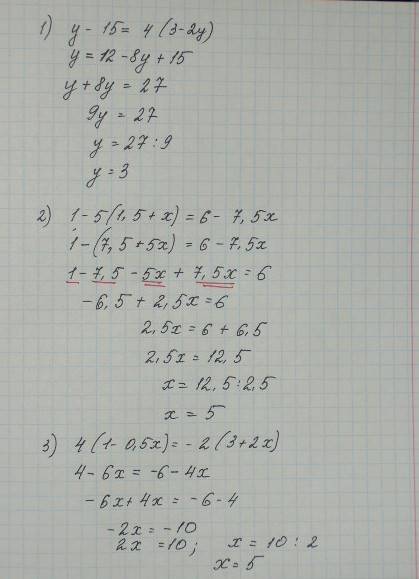 1) y - 15 = 4 (3-2y)
y = 12 - 8y + 15
y + 8y = 27
9y = 27
y = 27 : 9
y = 3
2) 1 - 5 (1,5 + x) = 6 - 7,5x
1 - (7,5 + 5x) = 6 - 7,5x
1 - 7,5 - 5x + 7,5x = 6
-6,5 + 2,5x = 6
2,5x = 6 + 6,5
2,5x = 12,5
x = 12,5 : 2,5
x = 5
3) 4 (1 - 0,5x) = -2 (3+2x)
4 - 6x = -6 - 4x
-6x + 4x = -6 - 4
-2x = -10
2x = 10; x = 10 : 2
x = 5